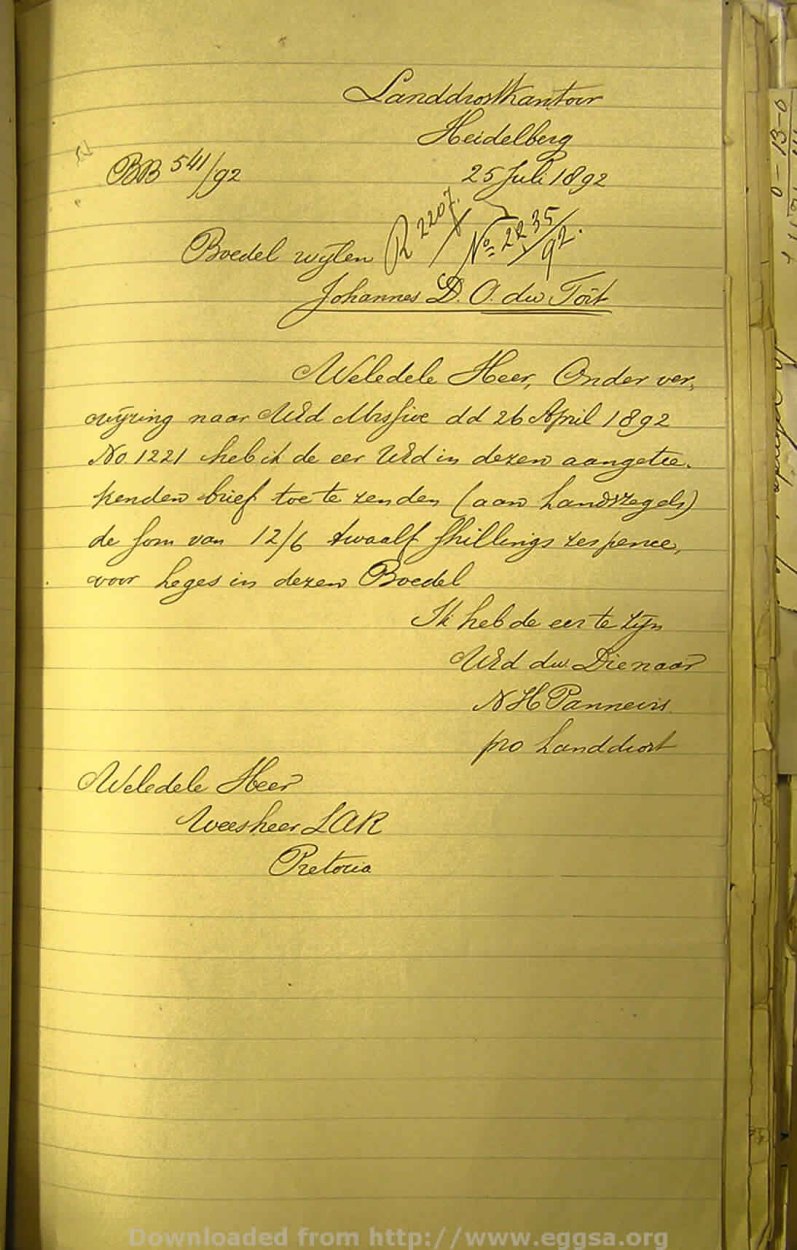 Landdrostkantoor
Heidelberg
BB 541/92
25 Juli 1892
R 2207
No. 2235/92.
Boedel wijlen
Johannes D. O. du Toit
Weledele Heer, Onder ver,
wijzing naar UEd Missive dd 26 April 1892
No 1221 heb ik de eer UEd in dezen aangetee,
kenden brief toe te zenden (aan Landszegels)
de som van 12/6 twaalf shillings zes pence,
voor Leges in dezen Boedel
Ik heb de eer te zijn
UEd dw. Dienaar
N H Pannevis
pro Landdrost
Weledele Heer
Weesheer ZAR
Pretoria
0-13-0
Downloaded from http://www.eggsa.org